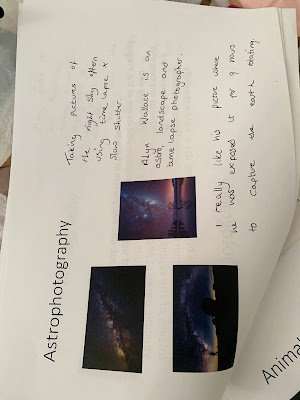 Astrophotography
Taking pictures of
the night sky often
using time lapse x
slow shutter.
Alyn Wallace is an
astro, landscape and
time lapse photographer.
I really like his picture where
he was exposed it for 9 hours
to capture the earth rotating.
Animal